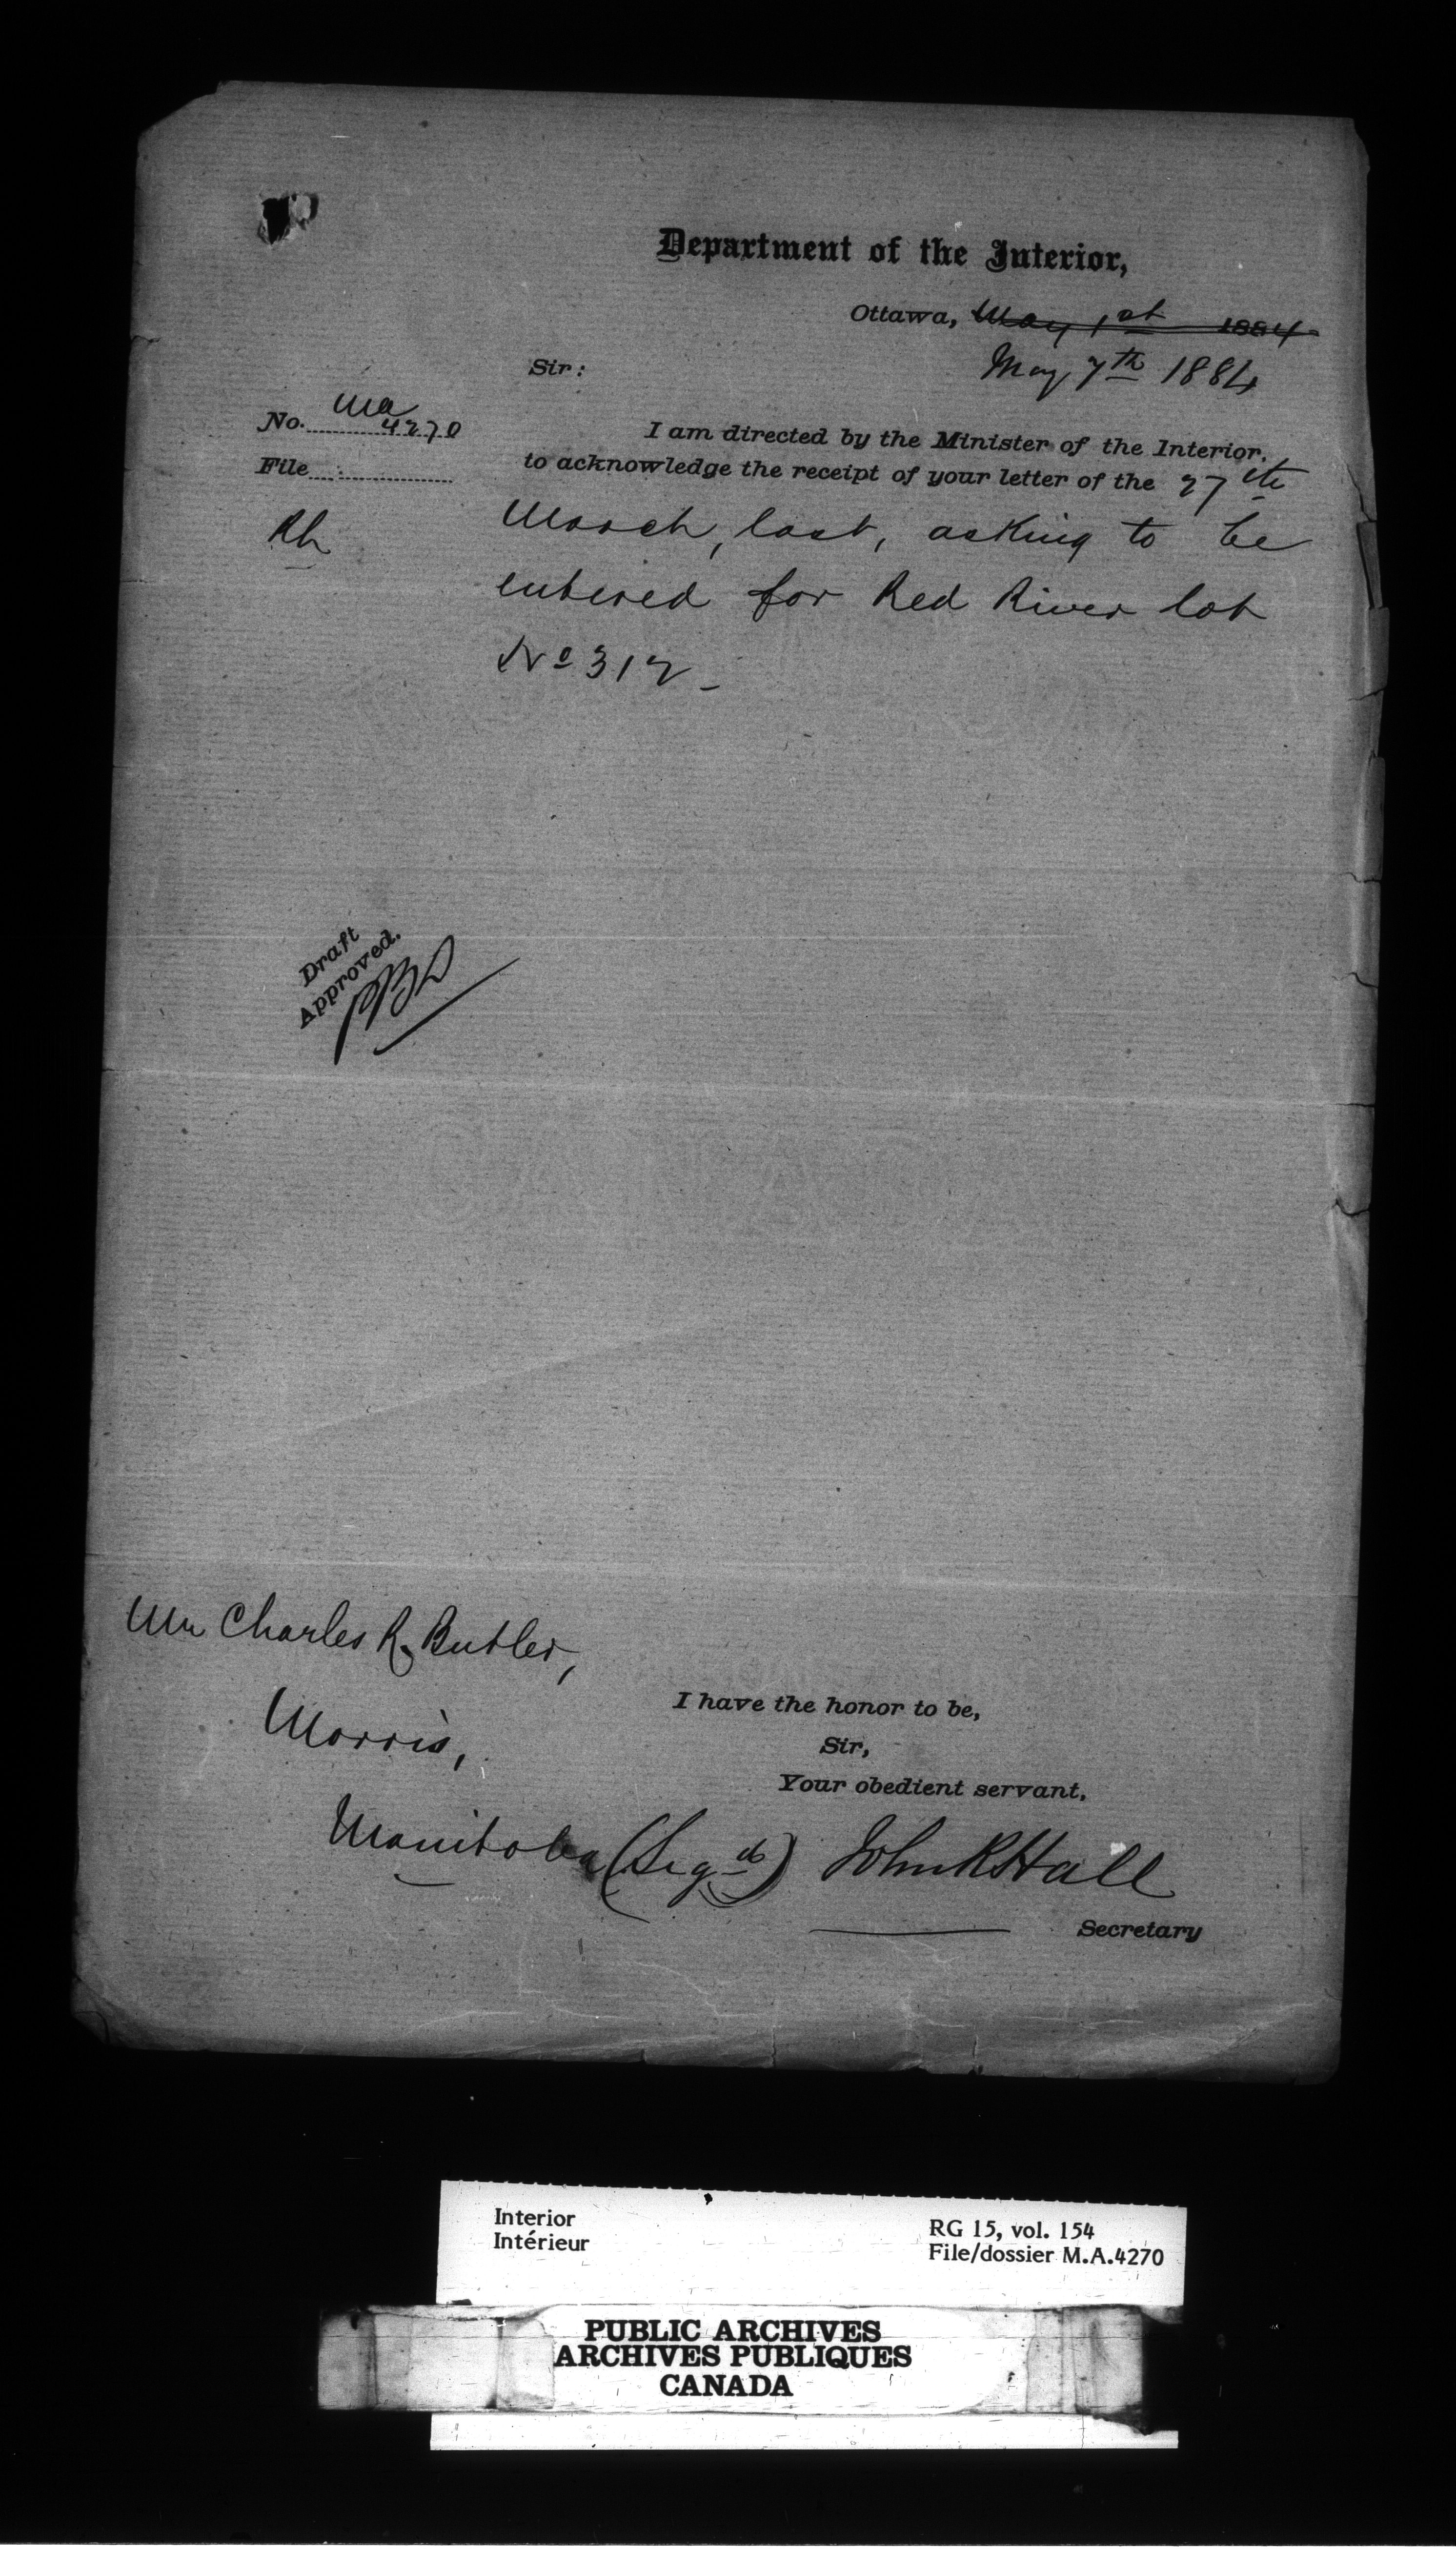 Department of the Interior,
Ottawa, May 1st 1884
May 7th 1884
Sir:
No. Ma 4270
File
Rh
I am directed by the Minister of the Interior,
to acknowledge the receipt of your letter of the 27th
March, last, asking to be
entered for Red River lot
No 312
Draft
Approved.
Mr Charles R. Butler,
Morris,
Manitoba
I have the honor to be,
Sir,
Your obedient servant,
(Sigd) John R Hall
Secretary
Interior
Intérieur
RG 15, vol. 154
File/dossier M.A.4270
PUBLIC ARCHIVES
ARCHIVES PUBLIQUES
CANADA